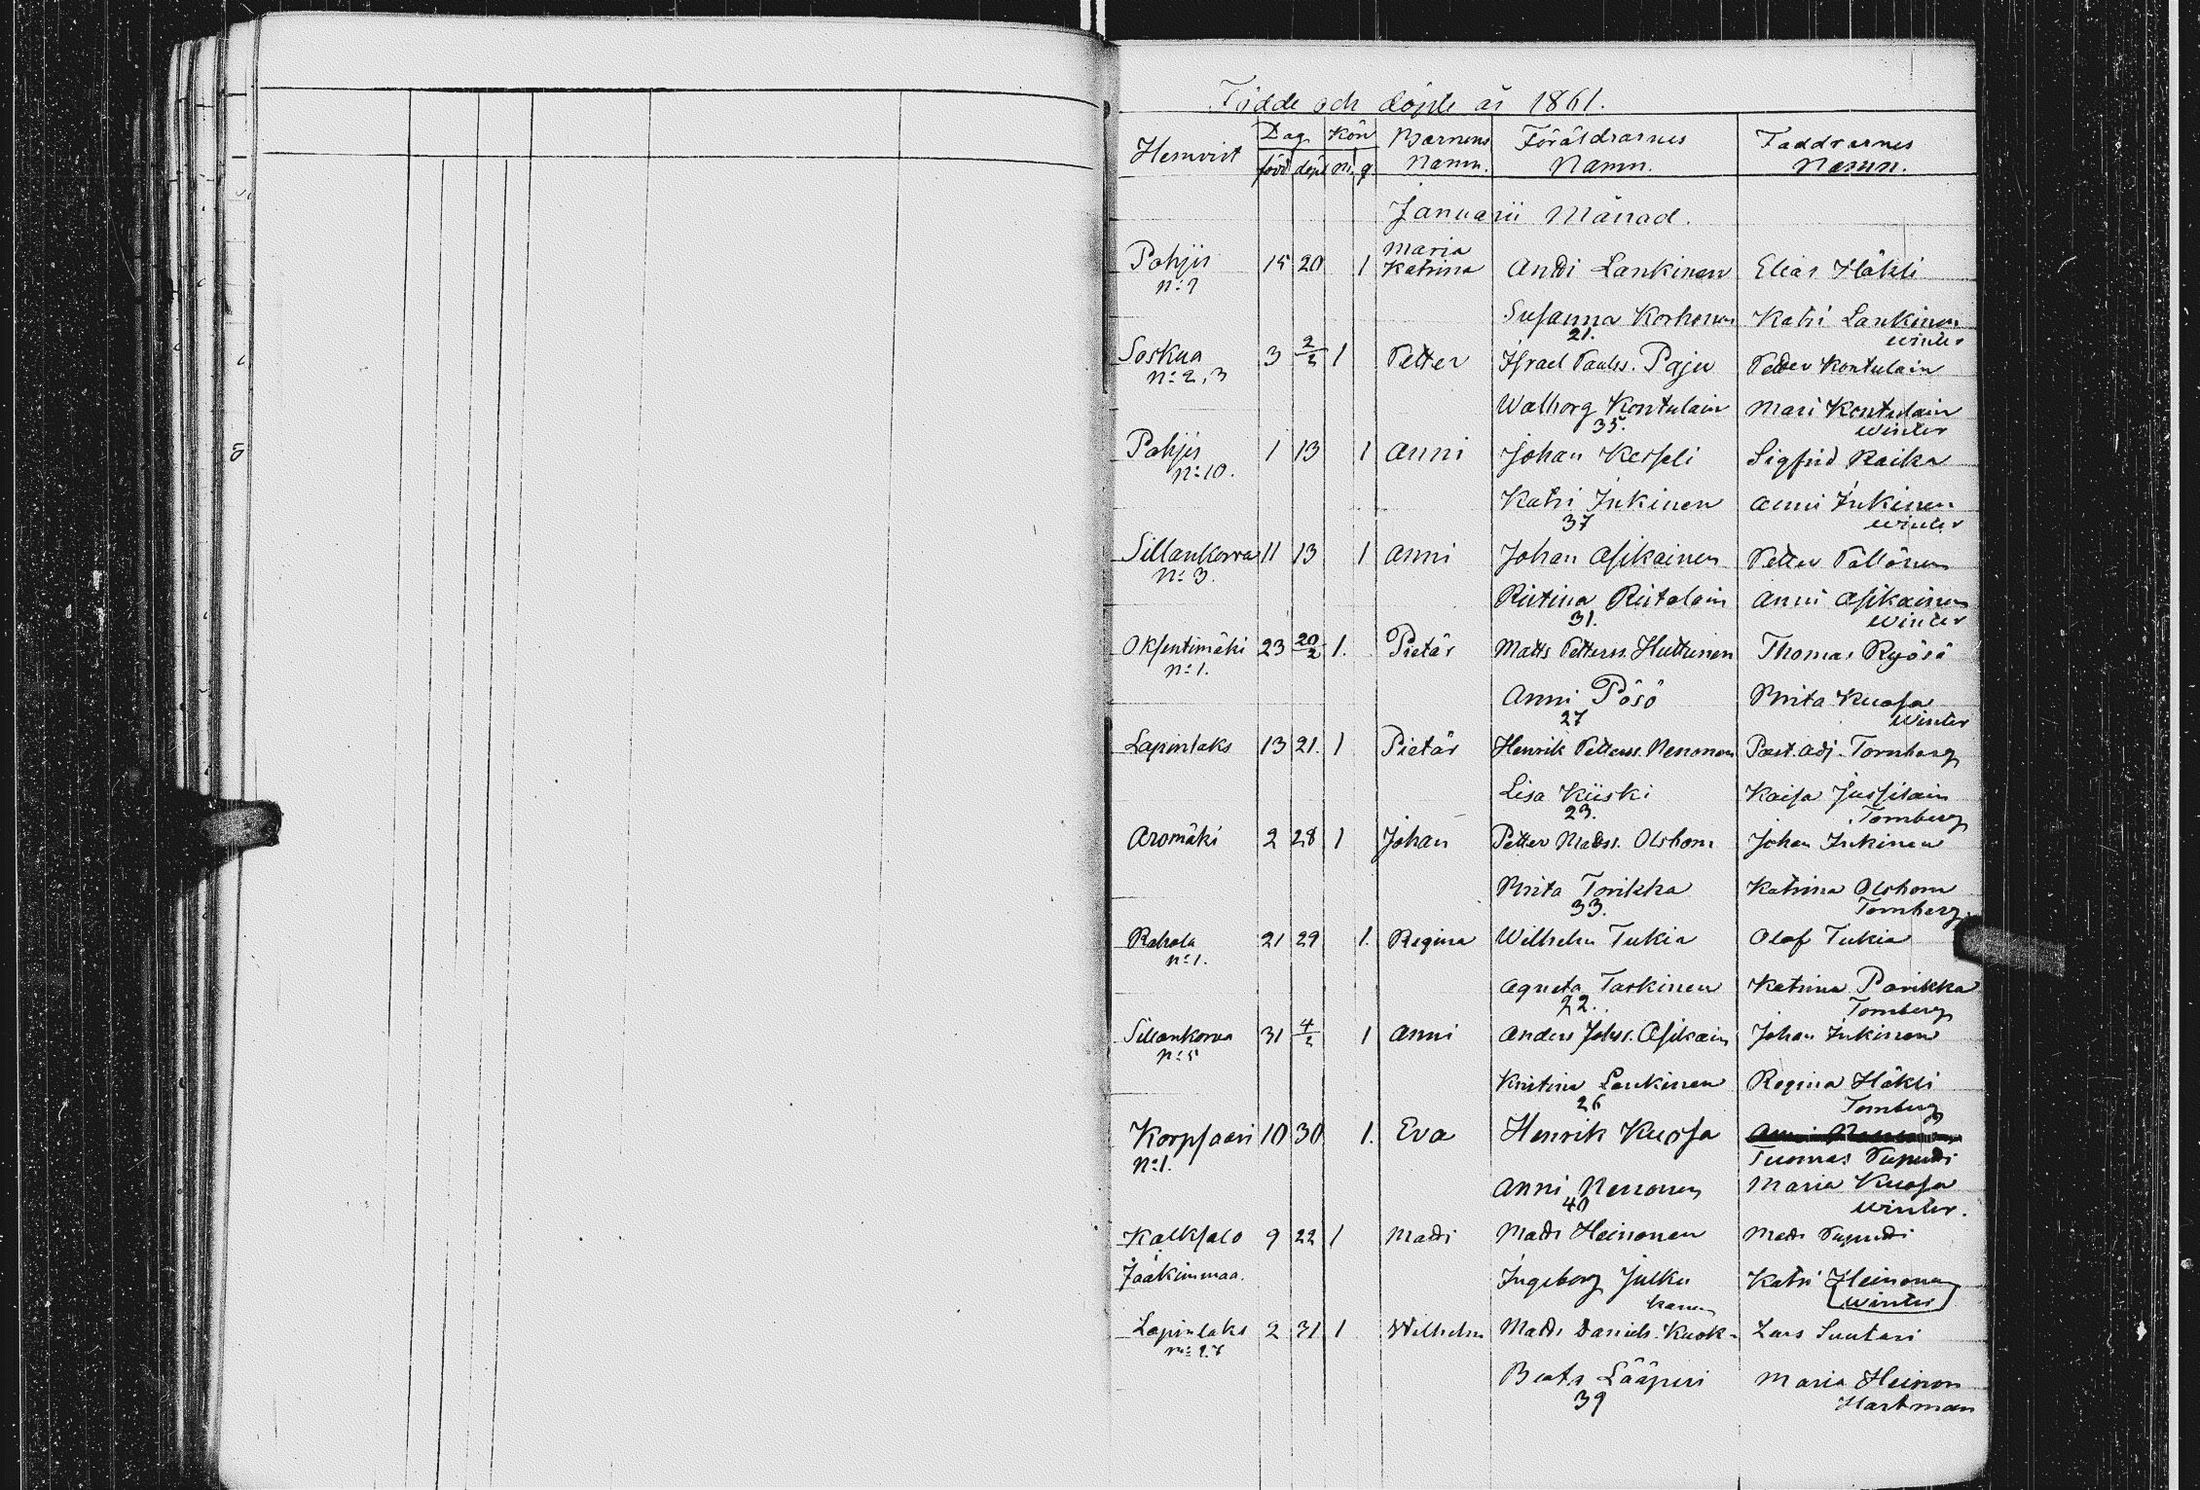 Födde och döpte år 1861.
Hemvist Dag Kön Barnens Föräldrarnes Faddrarnes
född döpt m. q. Namn. Namn. Namn.
Januarii Månad.
Maria
Pohjis 15 20 1 Katrina Andi Lankinen Elias Häkli
No: 7
Susanna Korhonen Katri Lankinen
21. Winter
Soskua 3 2/2 1 Petter Israel Paulss. Paju Petter Kontulain
No: 2, 3
Walborg Kontulain Mari Kontulain
35. Winter
Pohjis 1 13 1 Anni Johan Kesseli Sigfrid Raika
No: 10.
Katri Inkinen Anni Inkinen
37 Winter
Sillankorva 11 13 1 Anni Johan Asikainen Petter Pällönen
No: 3.
Ristina Ristolain Anni Asikainen
31. Winter
Oksentimäki 23 20/2 1. Pietär Matts Petterss. Huttunen Thomas Ryösö
No: 1.
Anni Pösö Brita Kuosa
27 Winter
Lapinlaks 13 21. 1 Pietär Henrik Petterss. Nenonen Past. Adj. Tornberg
Lisa Kiiski Kaisa Jussilain
23. Tornberg
Aromäki 2 28 1 Johan Petter Mattss. Olshom Johan Inkinen
Brita Torikka Katrina Olshom
33. Tornberg.
Rahola 21 29 1. Regina Wilhelm Tukia Olof Tukia
No: 1.
Agneta Taskinen Katrina Parikka
22. Tornberg
Sillankorva 31 4/2 1 Anni Anders Johss. Asikain Johan Inkinen
No: 5
Kristina Lankinen Regina Häkli
26 Tornberg
Korpsaari 10 30 1. Eva Henrik Kuosa
No: 1. Tuomas
Anni Nenonen Maria Kuosa
40 Winter.
Kalksalo 9 22 1 Matti Matts Heinonen Matts
Jaakimmaa. Ingeborg Julku Katri Heinonen
Winter
Lapinlaks 2 31 1 Wilhelm Matts Daniels. Kuok- Lars Suutari
kanen
Beata Lääperi Maria Heinon
39 Hartman